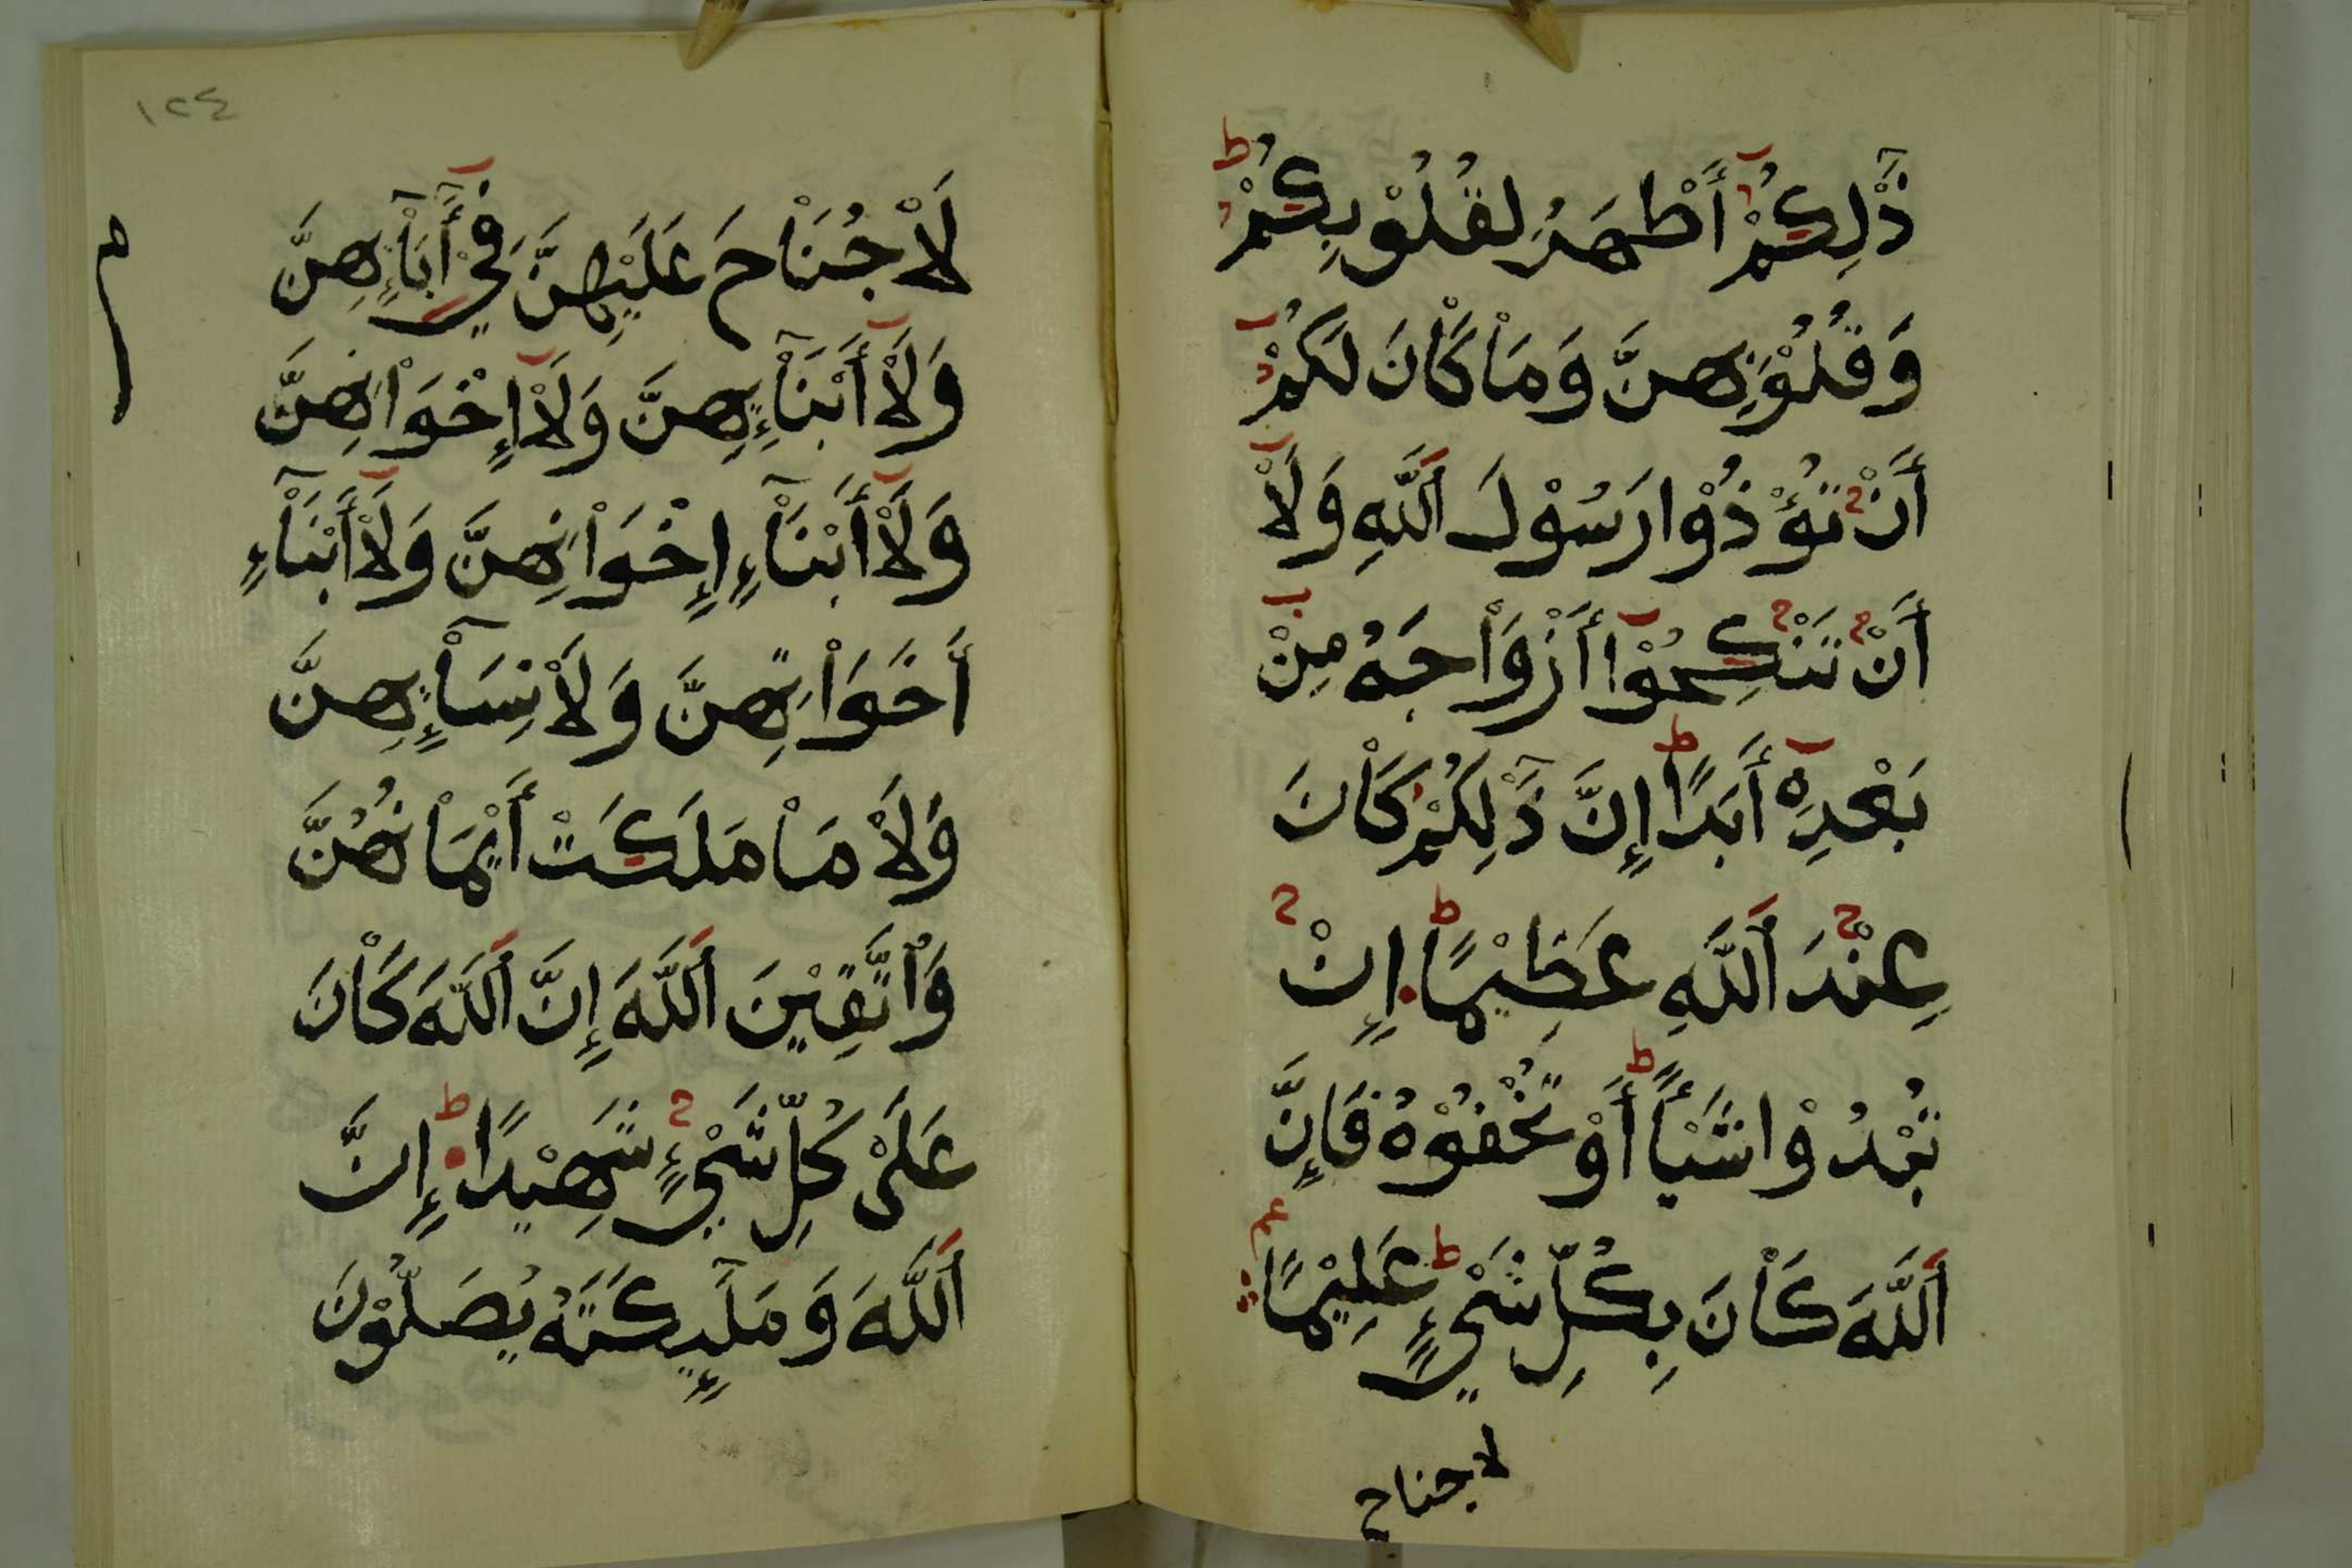 ذَٰلِكُمْ أَطْهَرُ لِقُلُوْبِكُمْ
وَقُلُوْبِهِنَّ وَمَاْ كَاْنَ لَكُمْ
أَنْ تُؤْذُوْا رَسُوْلَ اَللَّهِ وَلَاْ
أَنْ تَنْكِحُوْآ أَزْوَاْجَهُ مِنْ
بَعْدِهِ أَبَدًا إِنَّ ذَٰلِكُمْ كَاْنَ
عِنْدَ اَللَّهِ عَظِيْمًا إِنْ
تُبْدُوْا شَيْأً أَوْ تُخْفُوْهُ فَإِنَّ
اَللَّهَ كَاْنَ بِكُلِّ شَيْءٍ عَلِيْمًا
لا جناح
١٢٤
لَاْ جُنَاْحَ عَلَيْهِنَّ فِيْ أَبَآءِهِنَّ
وَلَاْ أَبْنَآءِهِنَّ وَلَاْ إِخْوَاْنِهِنَّ
وَلَاْ أَبْنَآءِ إِخْوَاْنِهِنَّ وَلَاْ أَبْنَآءِ
أَخَوَاْتِهِنَّ وَلَاْ نِسَآءِهِنَّ
وَلَاْ مَاْ مَلَكَتْ أَيْمَاْنُهُنَّ
وَاْتَّقِيْنَ اَللَّهَ إِنَّ اَللَّهَ كَاْنَ
عَلَىْ كُلِّ شَيْءٍ شَهِيْدًا إِنَّ
اَللَّهَ وَمَلَٰٓئِكَتَهُ يُصَلُّوْنَ